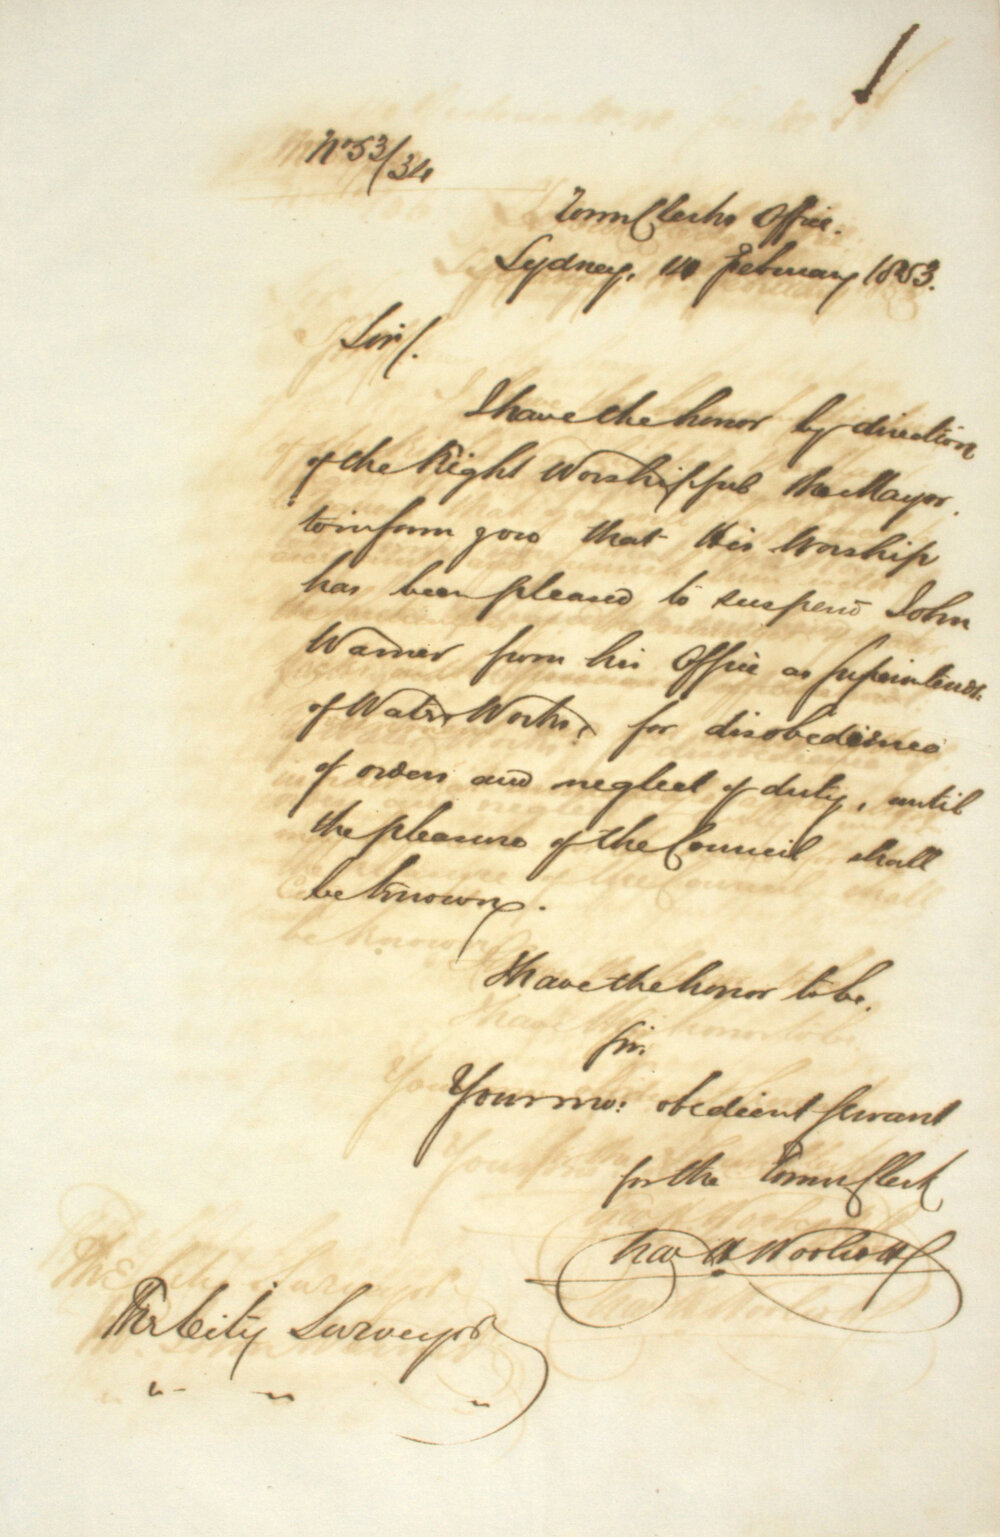 No 53/34
Town Clerks Office.
Sydney, 14 February 1853.
Sir/.
I have the honor by direction
of the Right Worshipful the Mayor.
to inform you that His Worship
has been pleased to suspend John
Warner from his Office as Superintendt.
of Water Works, for disobedience
of orders and neglect of duty, until
the pleasure of the Council shall
be known.
I have the honor to be.
Sir.
Your mo: obedient Servant
for the Town Clerk
Chas H Woolcott
The City Surveyor